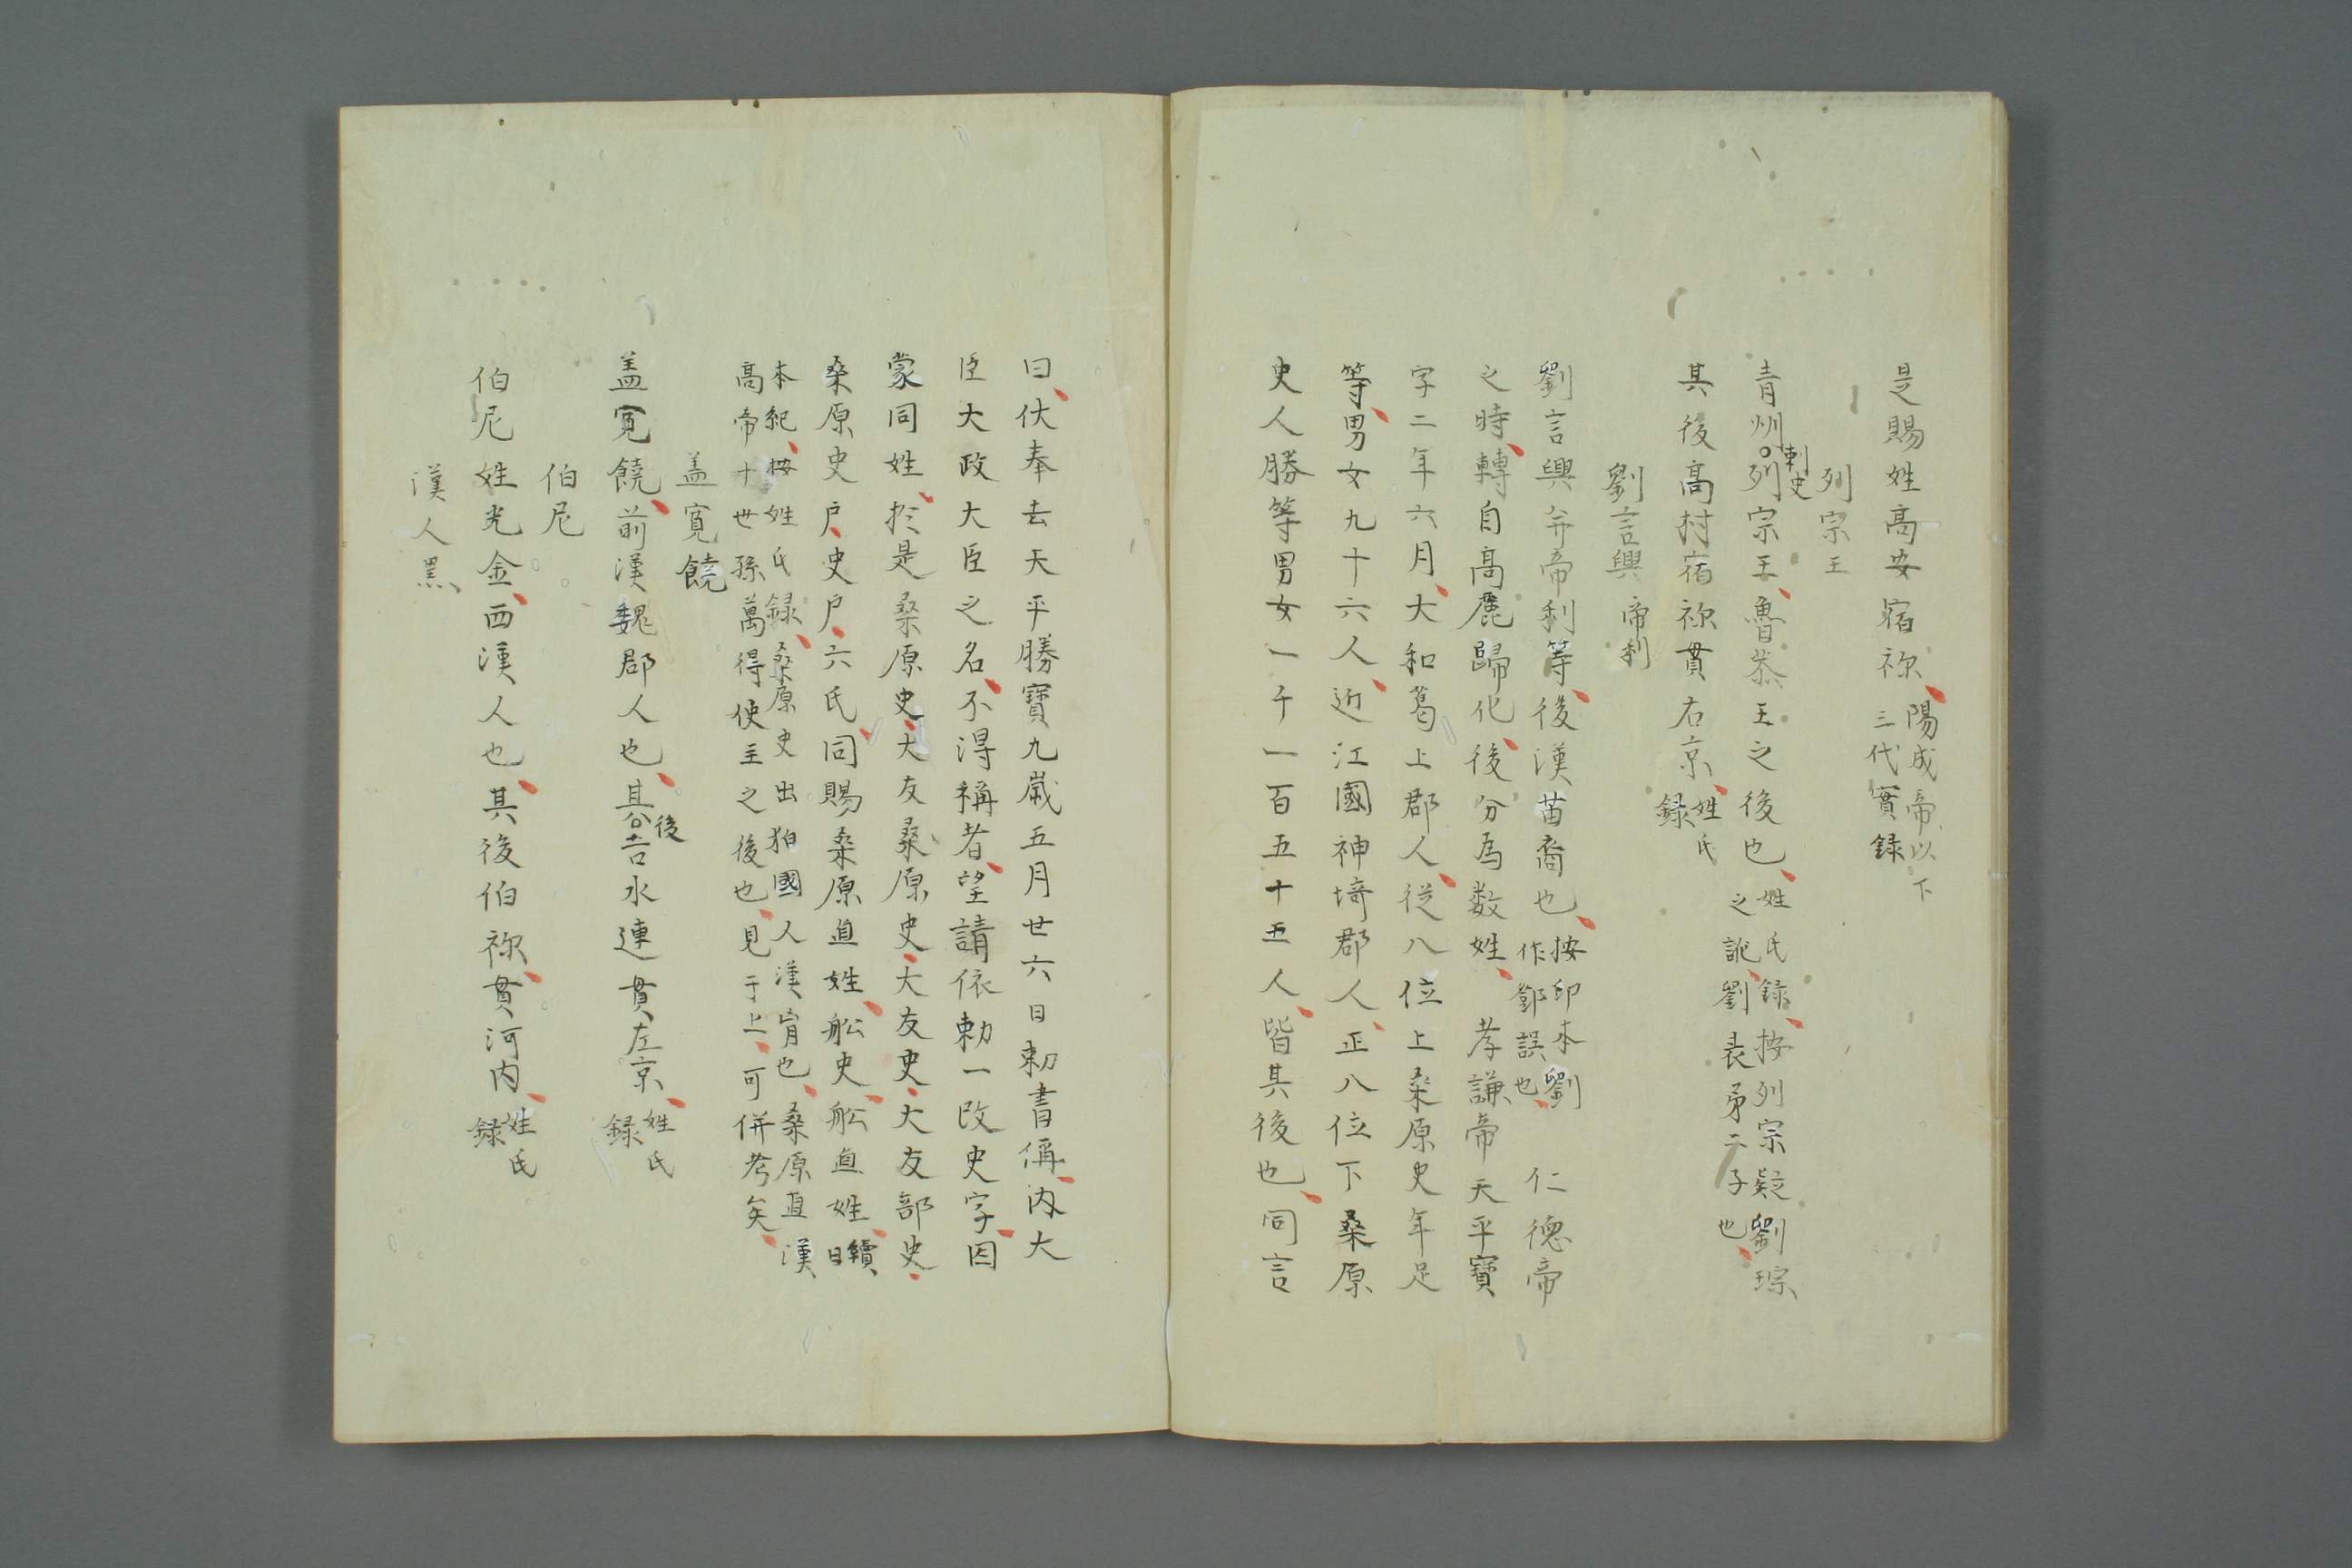 是賜姓高安宿祢、陽成帝以下三代實録
列宗王
青州刺史列宗王、魯恭王之後也、姓氏録、按列宗疑劉琮之訛、劉表第二子也、
其後高村宿祢貫右京、姓氏録
劉言興 帝利
劉言興并帝利等、後漢苗裔也、按印本劉作鄧誤也、仁德帝
之時、轉自高麗歸化、後分為数姓、孝謙帝天平寶
字二年六月、大和葛上郡人、從八位上桒原史年足
等、男女九十六人、近江國神埼郡人、正八位下桑原
史人勝等男女一千一百五十五人、皆其後也、同言
曰、伏奉去天平勝寶九嵗五月廿六日勅書偁、内大
臣大政大臣之名、不得稱者、望請依勅一改史字、因
蒙同姓、於是桑原史、大友桑原史、大友史、大友部史、
桑原史戸、史戸、六氏、同賜桑原直姓、舩史、舩直姓、續日
本紀、按姓氏録、桑原史出狛國人漢胄也、桑原直漢
高帝十世孫萬得使主之後也、見于上、可併考矣、
盖寛饒
盖寛饒、前漢魏郡人也、其後吉水連貫左京、姓氏録
伯尼
伯尼姓光金、西漢人也、其後伯祢、貫河内、姓氏録
漢人黑